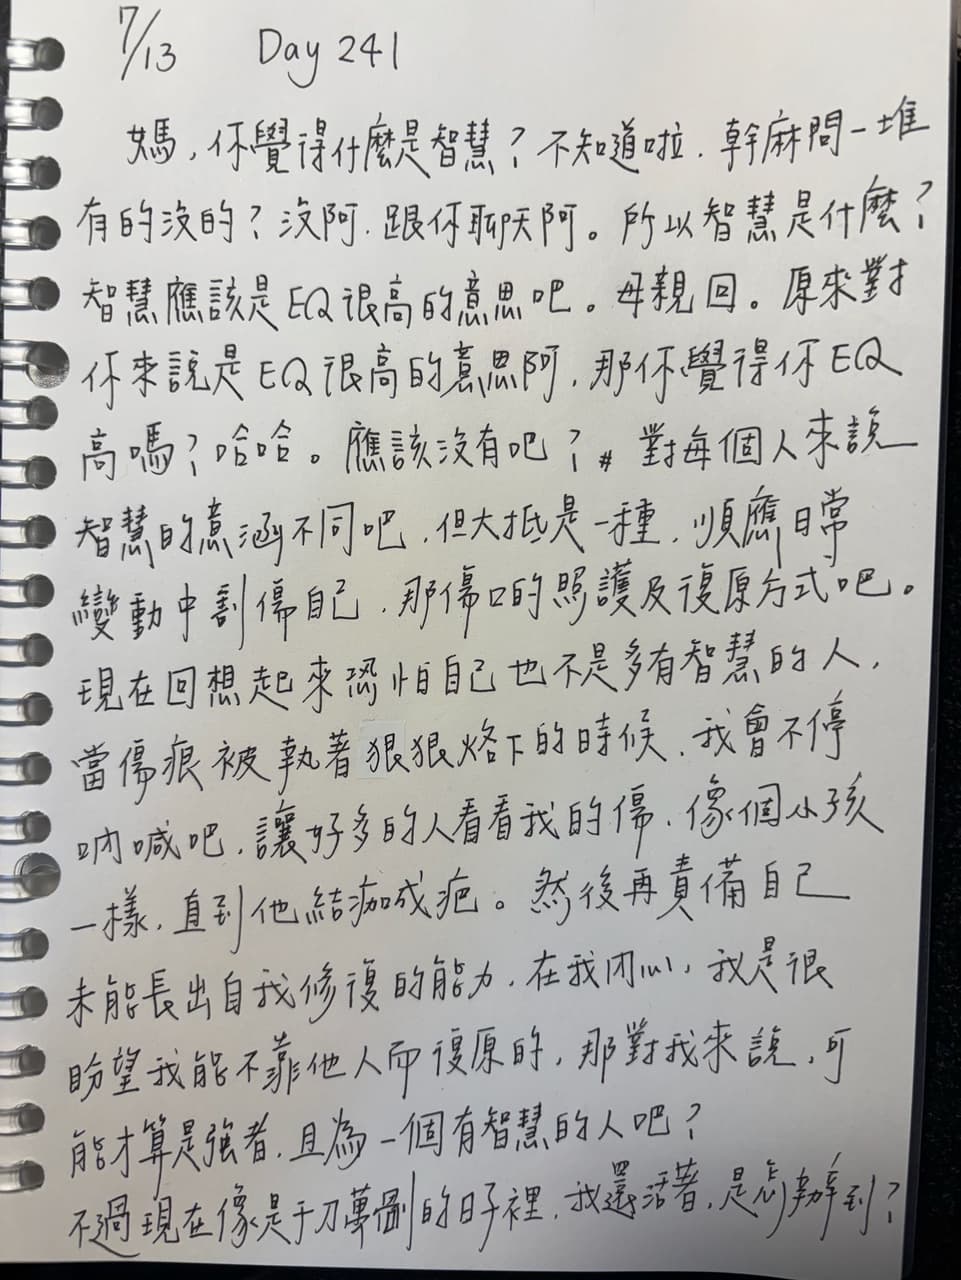 7/13 Day 241
媽，你覺得什麼是智慧？不知道啦，幹麻問一堆
有的沒的？沒阿，跟你聊天阿。所以智慧是什麼？
智慧應該是EQ很高的意思吧。母親回。原來對
你來說是EQ很高的意思阿，那你覺得你EQ
高嗎？哈哈。應該沒有吧？# 對每個人來說
智慧的意涵不同吧，但大抵是一種，順應日常
變動中割傷自己，那傷口的照護及復原方式吧。
現在回想起來恐怕自己也不是多有智慧的人，
當傷痕被執著狠狠烙下的時候，我會不停
吶喊吧，讓好多的人看看我的傷，像個小孩
一樣，直到他結痂成疤。然後再責備自己
未能長出自我修復的能力，在我內心，我是很
盼望我能不靠他人而復原的，那對我來說，可
能才算是強者，且為一個有智慧的人吧？
不過現在像是千刀萬剮的日子裡，我還活著，是怎辦到？